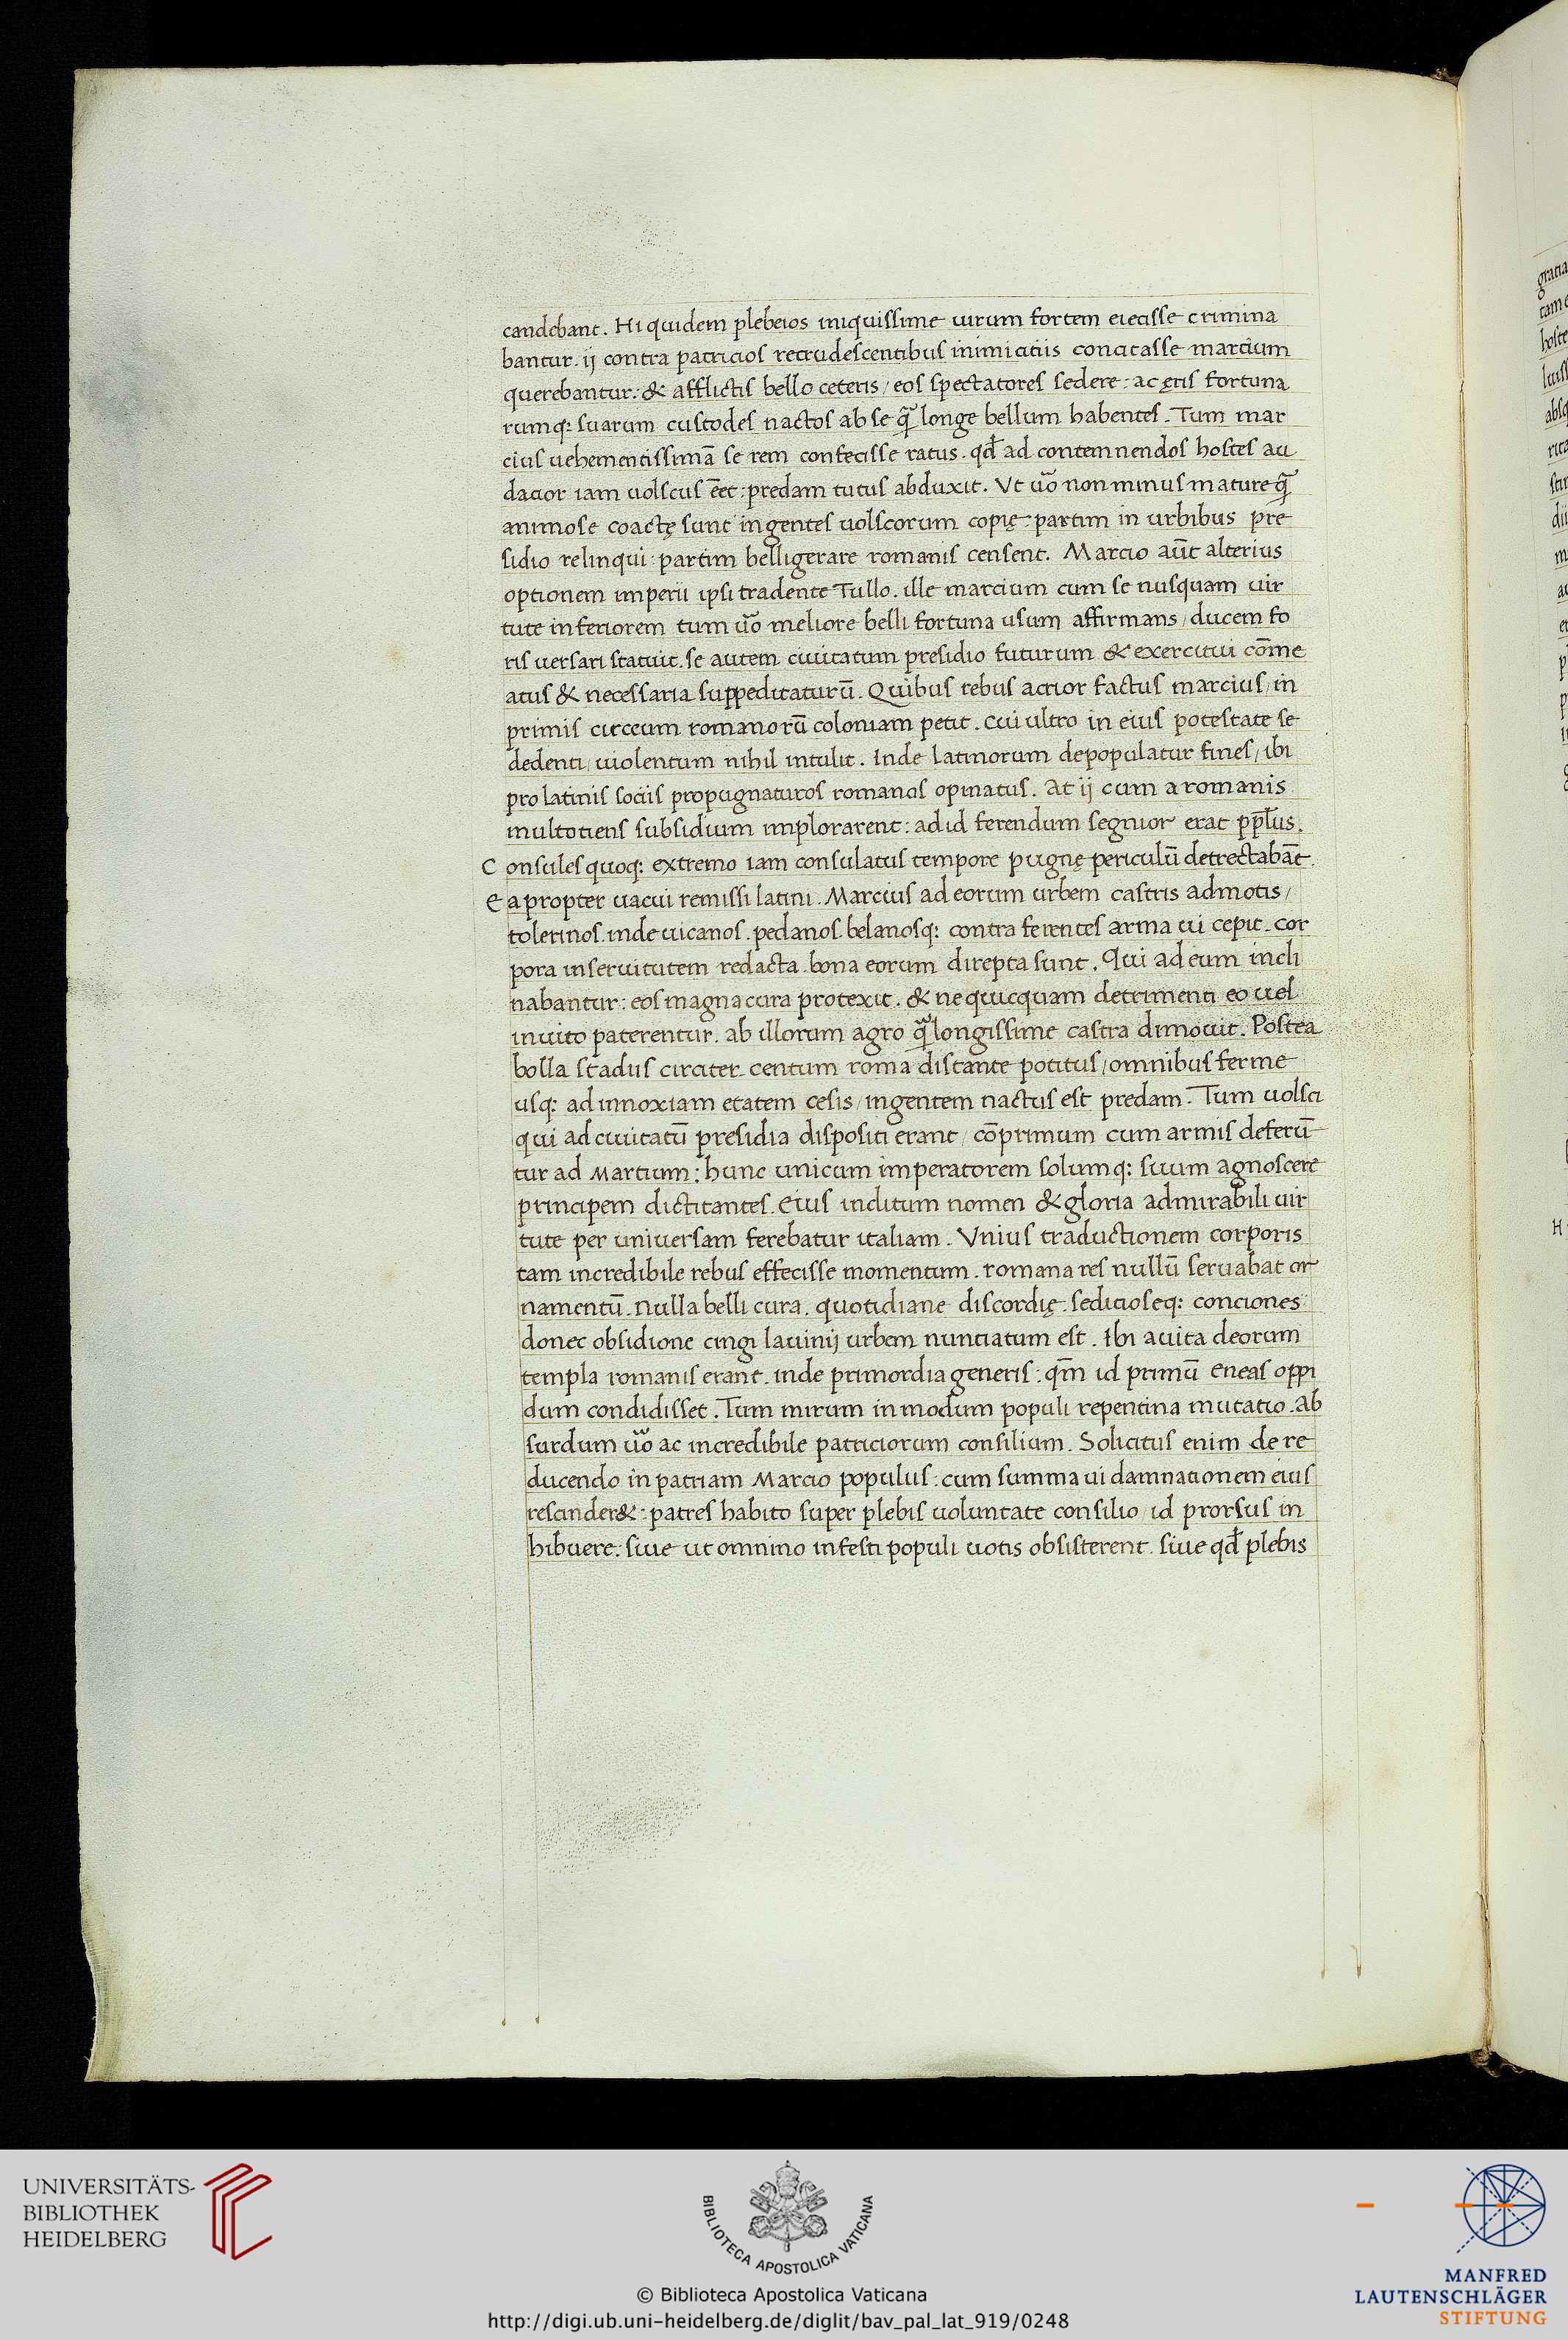 candebant. Hi quidem plebeios iniquissime uirum fortem eiecisse crimina
bantur. ij contra patricios recrudescentibus inimicitiis concitasse marcium
querebantur: & afflictis bello ceteris / eos spectatores sedere: ac ęris fortuna
rumq; suarum custodes nactos ab se q̃ longe bellum habentes. Tum mar
cius uehementissimā se rem confecisse ratus. qđ ad contemnendos hostes au
dacior iam uolscus eēt: predam tutus abduxit. Vt ũo non minus mature q̃
animose coactę sunt ingentes uolscorum copię partim in urbibus pre
sidio relinqui: partim belligerare romanis censent. Marcio aūt alterius
optionem imperii ipsi tradente Tullo. ille marcium cum se nusquam uir
tute inferiorem tum ũo meliore belli fortuna usum affirmans / ducem fo
ris uersari statuit. se autem ciuitatum presidio futurum & exercitui cōme
atus & necessaria suppeditaturū. Quibus rebus acrior factus marcius / in
primis circeum romanorū coloniam petit. cui ultro in eius potestate se
dedenti / uiolentum nihil intulit. Inde latinorum depopulatur fines / ibi
pro latinis sociis propugnaturos romanos opinatus. At ij cum a romanis
multotiens subsidium implorarent: ad id ferendum segnior erat pp̄lus.
Consules quoq; extremo iam consulatus tempore pugnę periculū detrectabāt.
Eapropter uacui remissi latini. Marcius ad eorum urbem castris admotis /
tolerinos. inde uicanos. pedanos. belanosq; contra ferentes arma ui cepit. cor
pora in seruitutem redacta. bona eorum direpta sunt. Qui ad eum incli
nabantur: eos magna cura protexit. & ne quicquam detrimenti eo uel
inuito paterentur. ab illorum agro q̃ longissime castra dimouit. Postea
bolla stadiis circiter centum roma distante potitus / omnibus ferme
usq; ad innoxiam etatem cesis / ingentem nactus est predam. Tum uolsci
qui ad ciuitatū presidia dispositi erant / cōprimum cum armis deferū
tur ad Martium: hunc unicum imperatorem solumq; suum agnoscere
principem dictitantes. Eius inclitum nomen & gloria admirabili uir
tute per uniuersam ferebatur italiam. Vnius traductionem corporis
tam incredibile rebus effecisse momentum. romana res nullū seruabat or
namentū. Nulla belli cura. quotidiane discordię. seditioseq; conciones
donec obsidione cingi lauinij urbem nunciatum est. Ibi auita deorum
templa romanis erant. inde primordia generis: qm̄ id primū Eneas oppi
dum condidisset. Tum mirum in modum populi repentina mutatio. Ab
surdum ũo ac incredibile patriciorum consilium. Solicitus enim de re
ducendo in patriam Marcio populus: cum summa ui damnationem eius
rescinder&: patres habito super plebis uoluntate consilio / id prorsus in
hibuere: siue ut omnino infesti populi uotis obsisterent. siue qđ plebis
UNIVERSITÄTS-
BIBLIOTHEK
HEIDELBERG
BIBLIOTECA APOSTOLICA VATICANA
© Biblioteca Apostolica Vaticana
http://digi.ub.uni-heidelberg.de/diglit/bav_pal_lat_919/0248
MANFRED
LAUTENSCHLÄGER
STIFTUNG